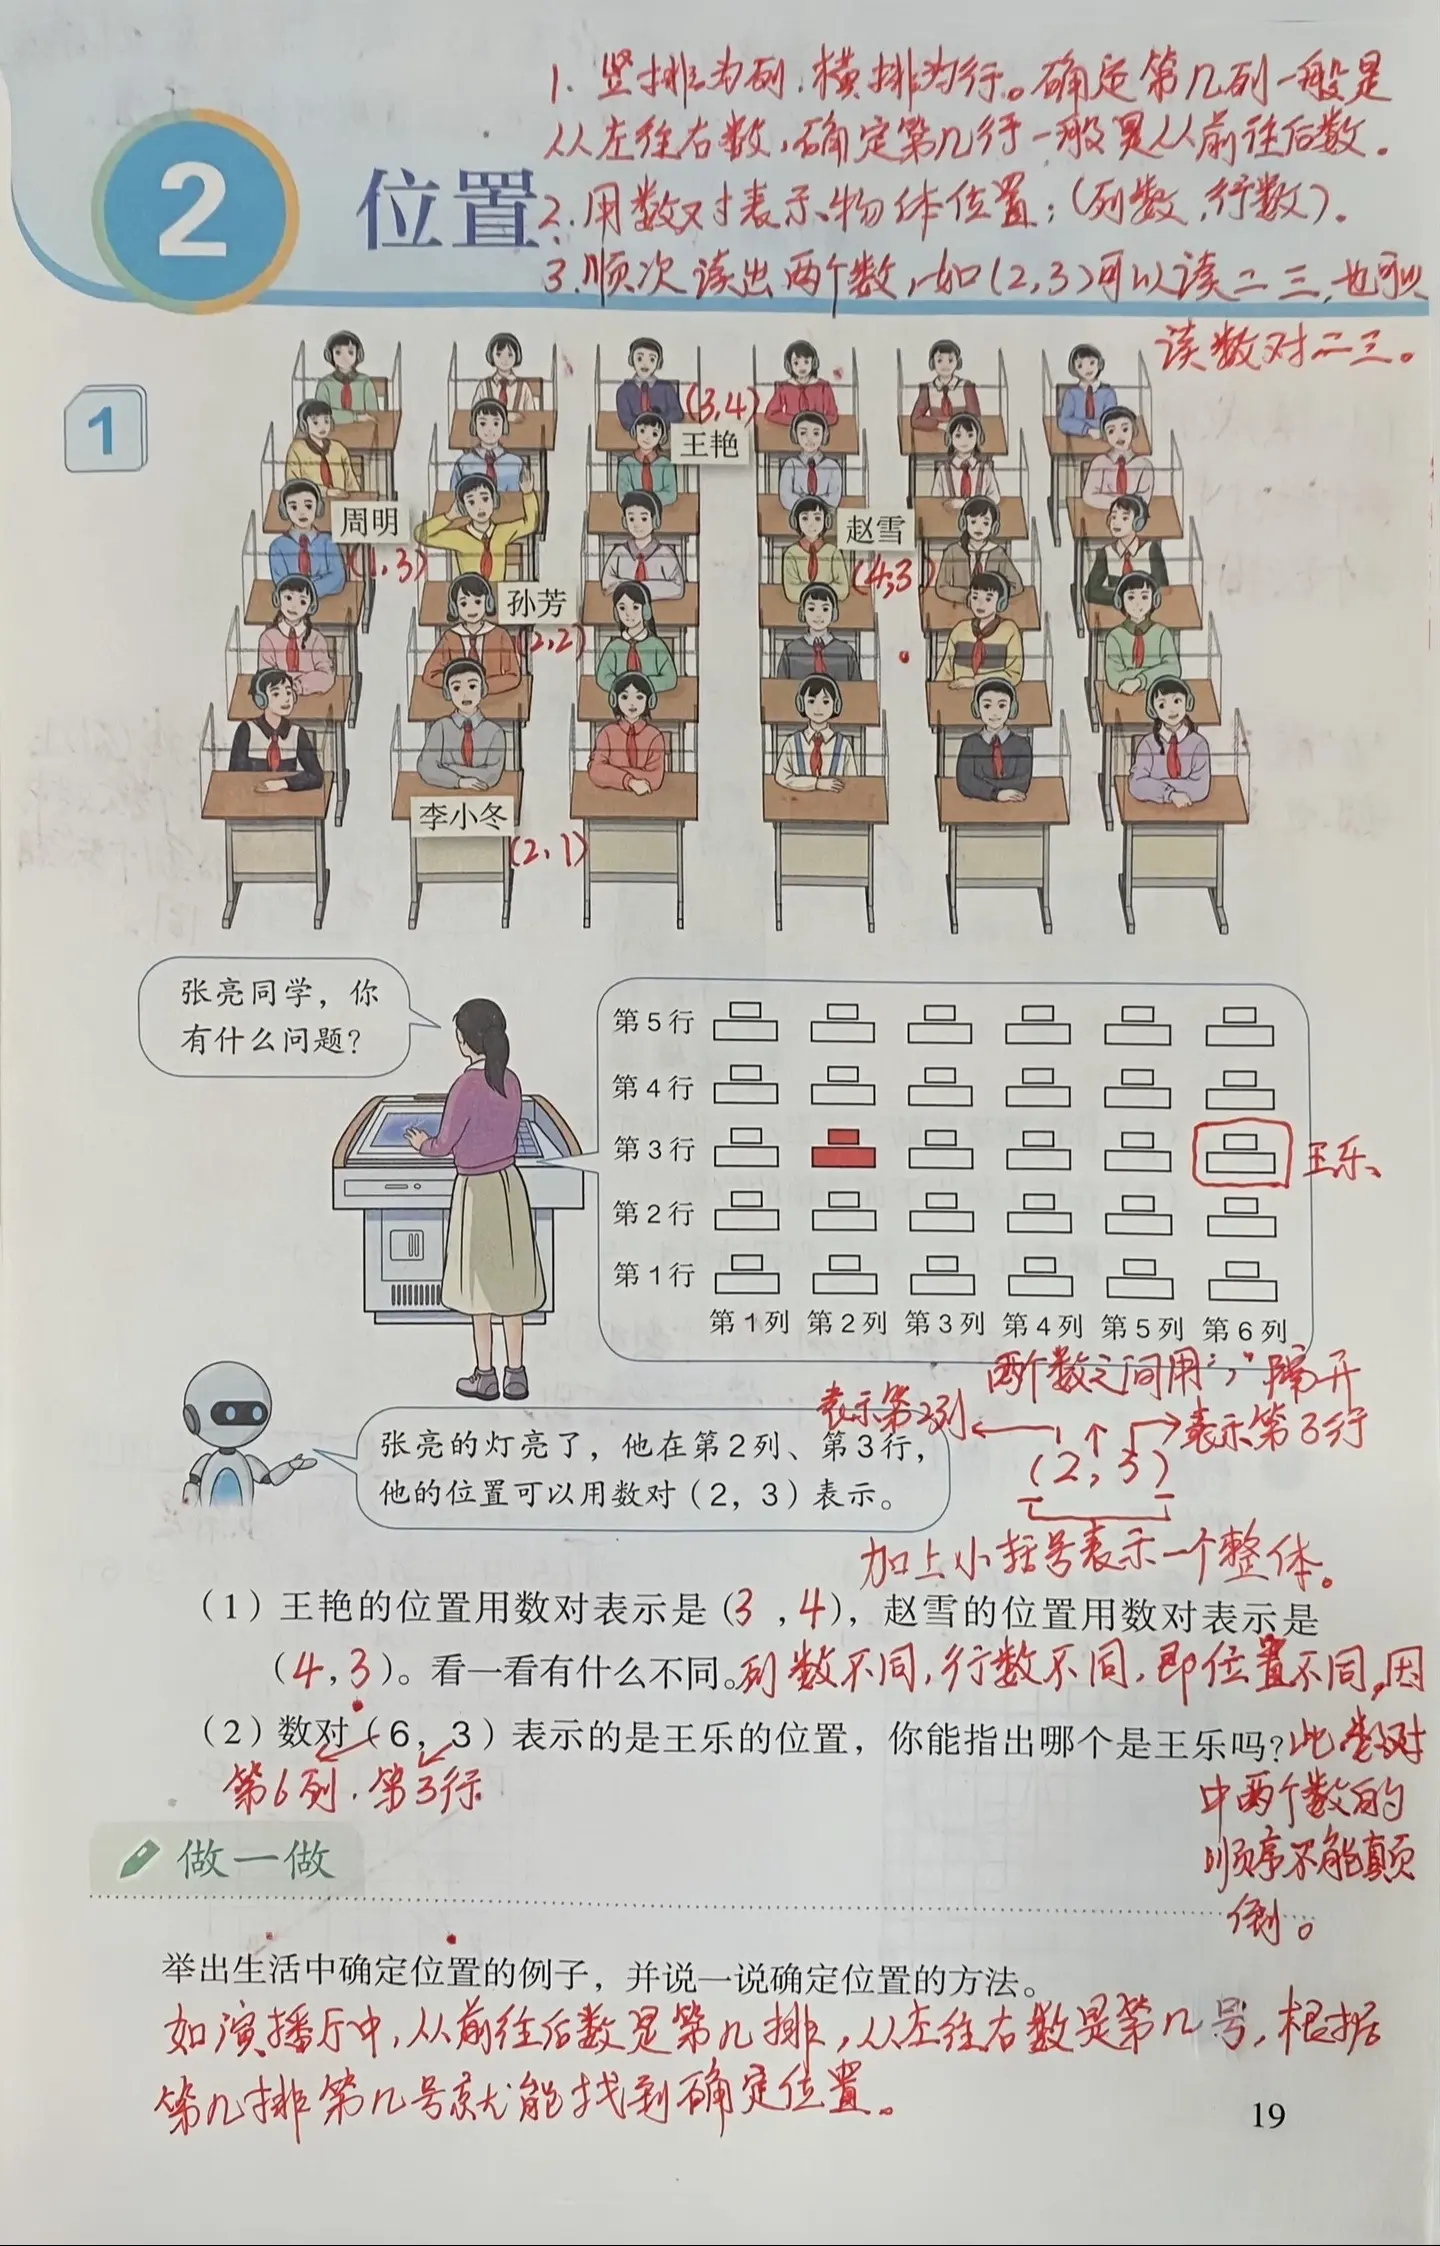 1. 竖排为列，横排为行。确定第几列一般是
从左往右数，确定第几行一般是从前往后数。
2
位置
2. 用数对表示物体位置：(列数，行数)。
3. 顺次读出两个数，如(2,3)可以读二三，也可以
读数对二三。
1
(3,4)
王艳
周明
赵雪
(1,3)
(4,3)
孙芳
(2,2)
李小冬
(2,1)
张亮同学，你
有什么问题？
第5行
第4行
第3行
王乐
第2行
第1行
第1列 第2列 第3列 第4列 第5列 第6列
两个数之间用“，”隔开
表示第2列 表示第3行
(2,3)
张亮的灯亮了，他在第2列、第3行，
他的位置可以用数对（2，3）表示。
加上小括号表示一个整体。
（1）王艳的位置用数对表示是(3,4)，赵雪的位置用数对表示是
(4,3)。看一看有什么不同。列数不同，行数不同，即位置不同，因
（2）数对（6，3）表示的是王乐的位置，你能指出哪个是王乐吗？此数对
第6列.第3行.
中两个数的
顺序不能颠
倒。
做一做
举出生活中确定位置的例子，并说一说确定位置的方法。
如演播厅中，从前往后数是第几排，从左往右数是第几号，根据
第几排第几号就能找到确定位置。
19